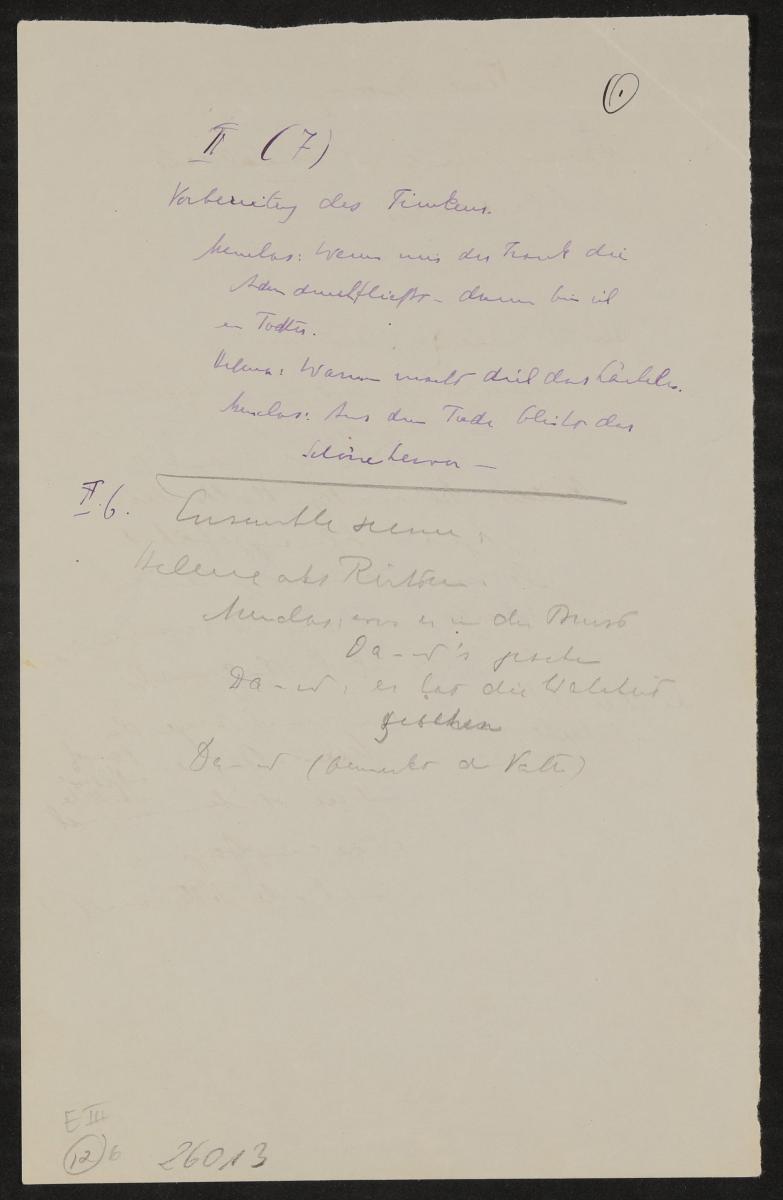 1.
II (7)
Vorbereitung des Trinkens.
Menelas: Wenn mir der Trank die
Adern durchfließt – dann bin ich
ein Todter.
Helena: Warum macht dich das lächeln.
Menelas: Aus dem Tode blickt das
Schöne hervor –
II.6.
Ensemble scene.
Helene als
Menelas: was er in der Brust
Da-ud's gesehen
Da-ud: er hat die Wahrheit
gesehen
Da-ud (bemerkt den Vater)
E III
12 b
26013